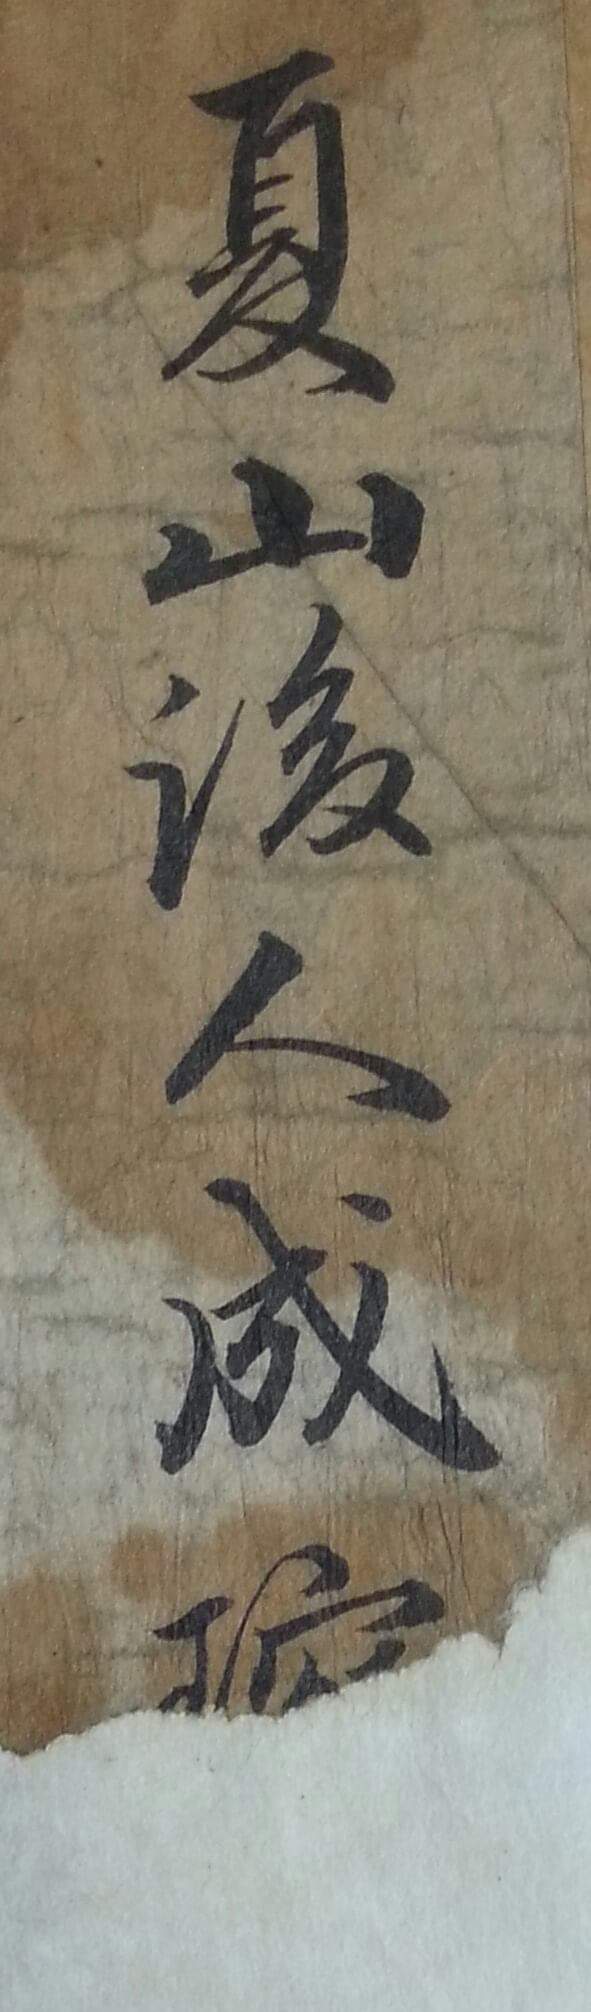 夏山後人成